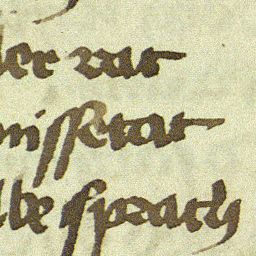 der rat
missetat
lbe sprach